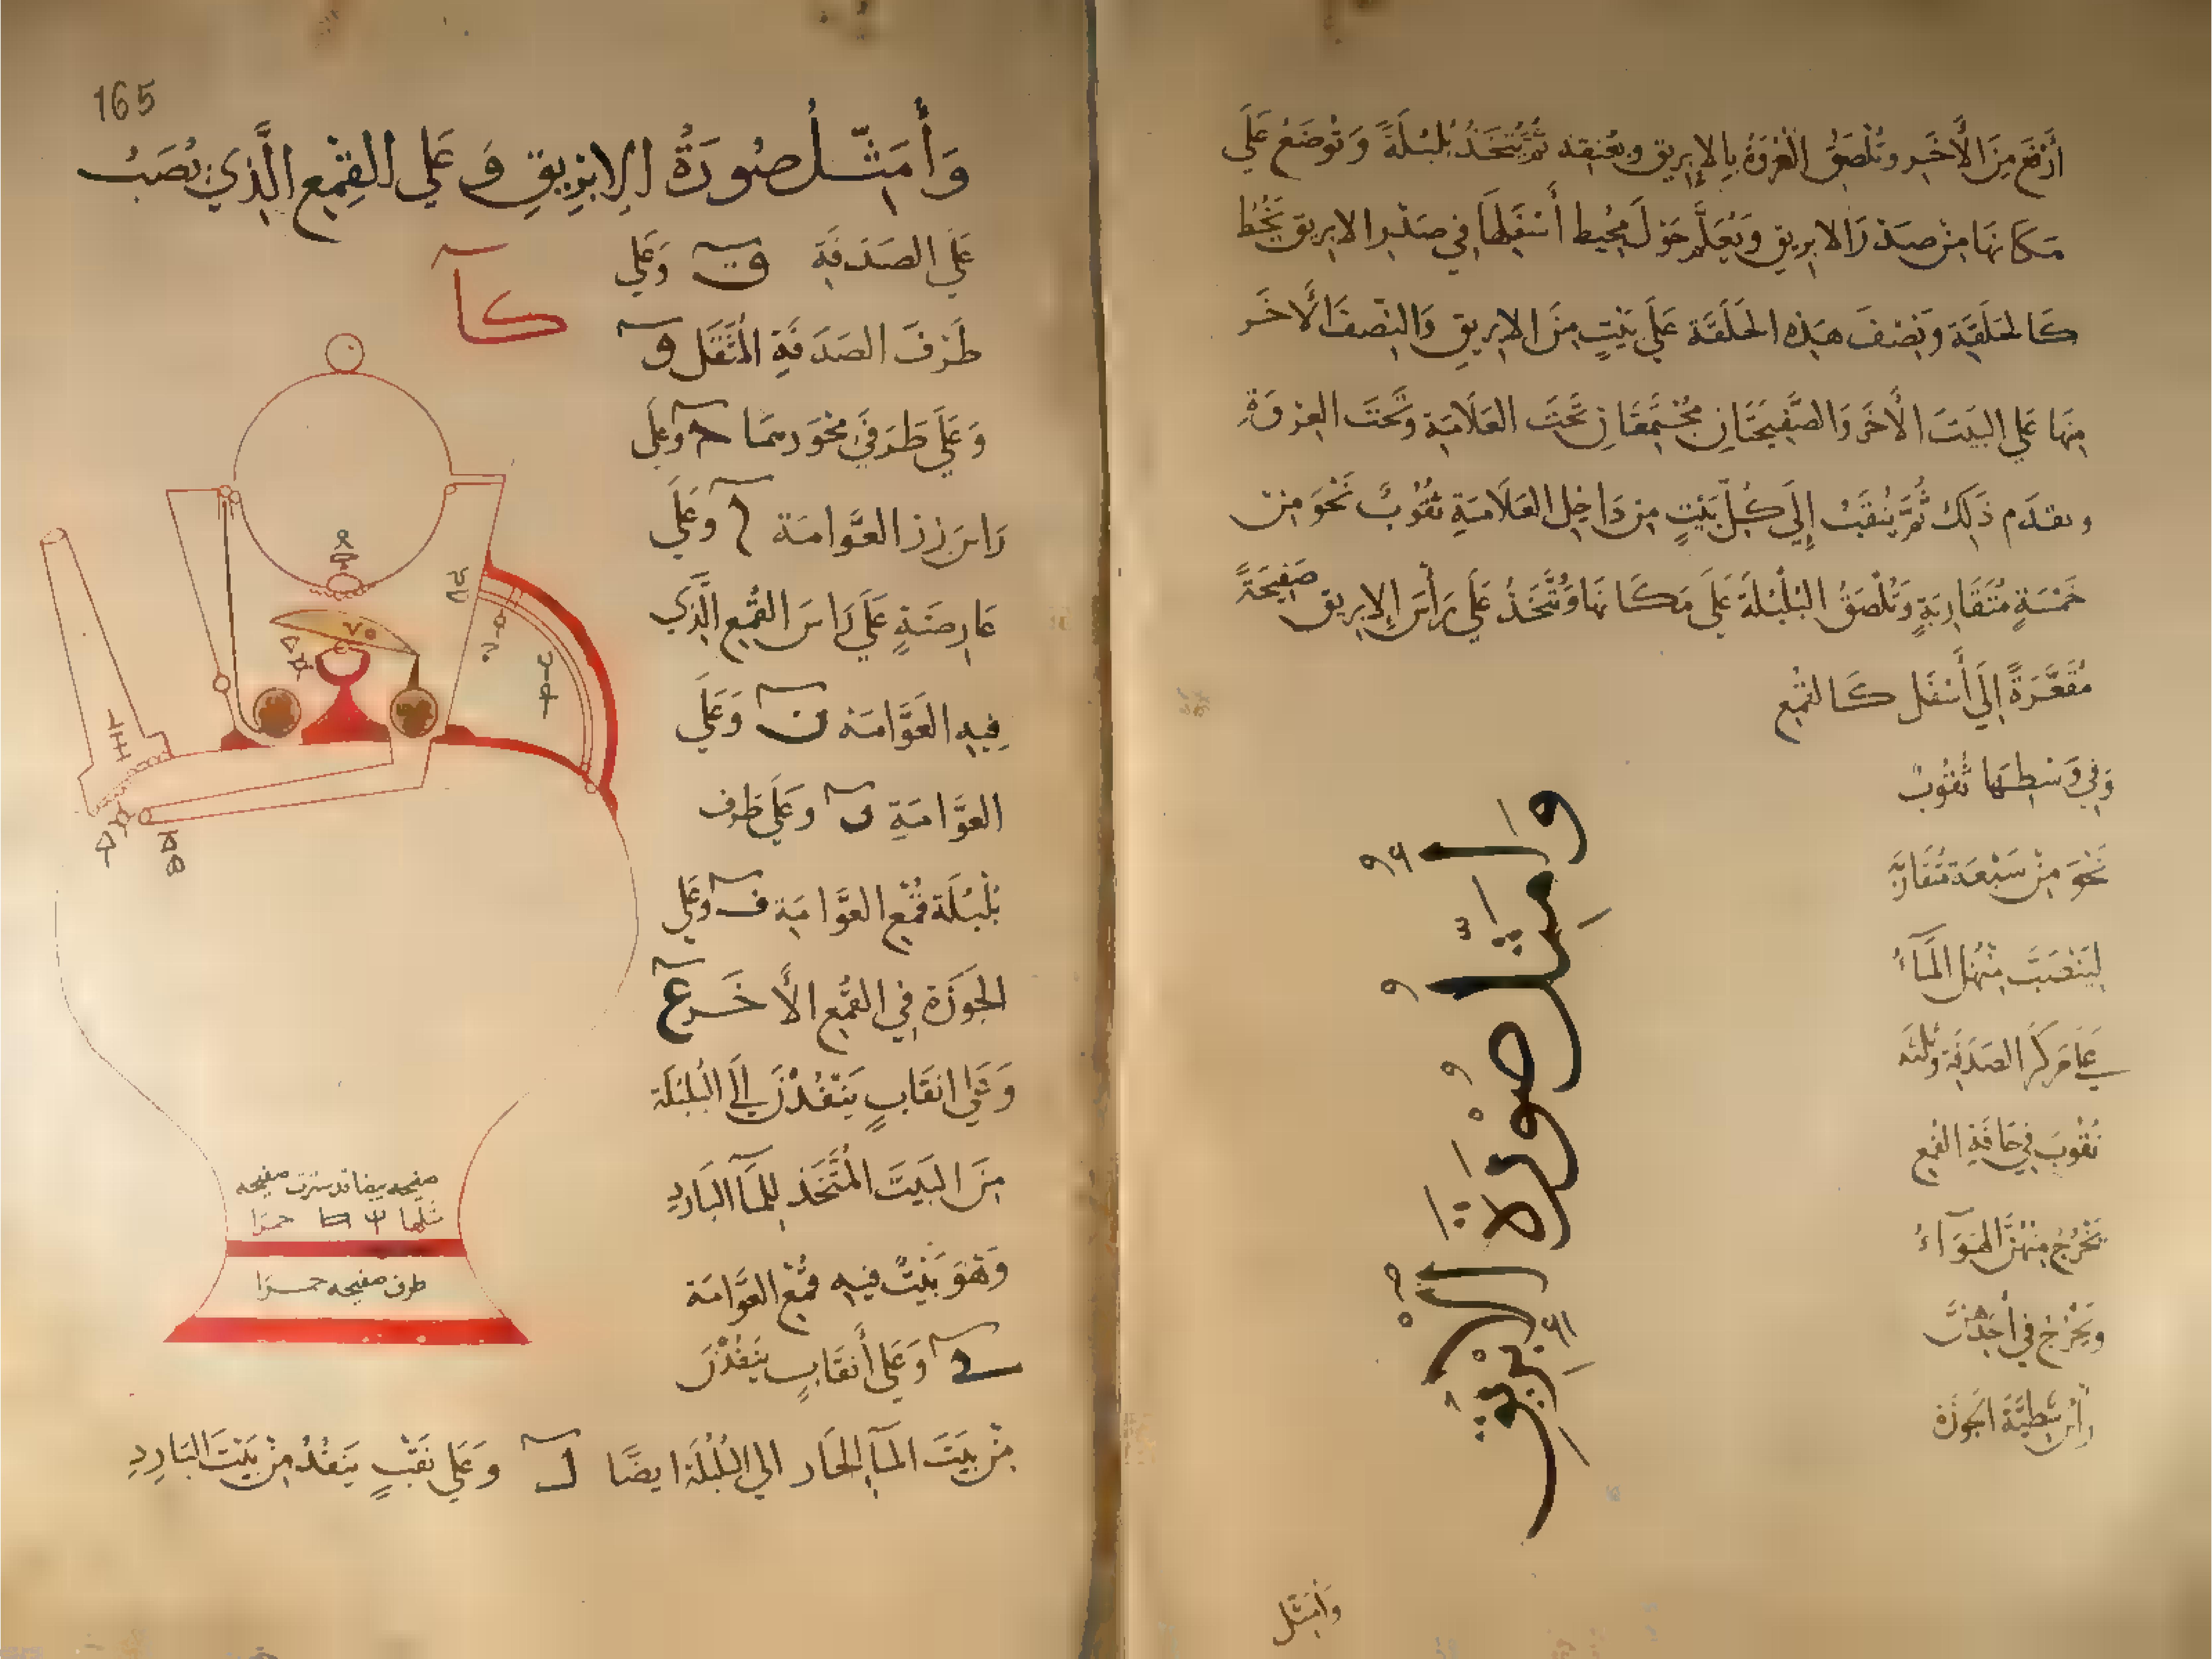 أرفع من الأخر وتلصق العروة بالإبريق وبعنقه ثم يتخذ بلبلة وتوضع على
مكانها من صدر الابريق ويعلم حول محيط أسفلها في صدر الابريق بخط
كالحلقة ونصف هذه الحلقة على بيت من الابريق والنصف الأخر
منها على البيت الأخر والصفيحتان مجتمعتان تحت العلامة وتحت العروة
وتقدم ذلك ثم يثقب إلى كل بيت من داخل العلامة ثقوب نحو من
خمسة متقاربة وتلصق البلبلة على مكانها وتتخذ على رأس الإبريق صفيحة
مقعرة إلى أسفل كالقمع
وفي وسطها ثقوب
نحو من سبعة متقاربة
لينصب منهن الماء
على مركز الصدفة وثلثه
ثقوب في حافة القمع
يخرج منهن الهواء
ويخرج في أحدهن
رأس شظية الجوزة
وأمثل صورة الإبريق
وأمثل
165
وأمثل صورة الابريق وعلى القمع الذي يصب
على الصدفة ق وعلى
طرف الصدفة المثقل و
وعلى طرفي محورهما ح وعلى
راس زر العوامة ر وعلى
عارضة على راس القمع الذي
فيه العوامة ن وعلى
العوامة س وعلى طرف
بلبلة قمع العوامة ف وعلى
الجوزة في القمع الأخر ع
وعلى انقاب ينفذن الى البلبلة
من البيت المتخذ للماء البارد
وهو بيت فيه قمع العوامة
وعلى أنقاب ينفذن
من بيت الماء الحار الي البلبلة ايضا ل وعلى نقب ينفذ من بيت البارد
صفيحه بيضا قد سترت صفيحه
مثلها حمرا
طرف صفيحه حمرا